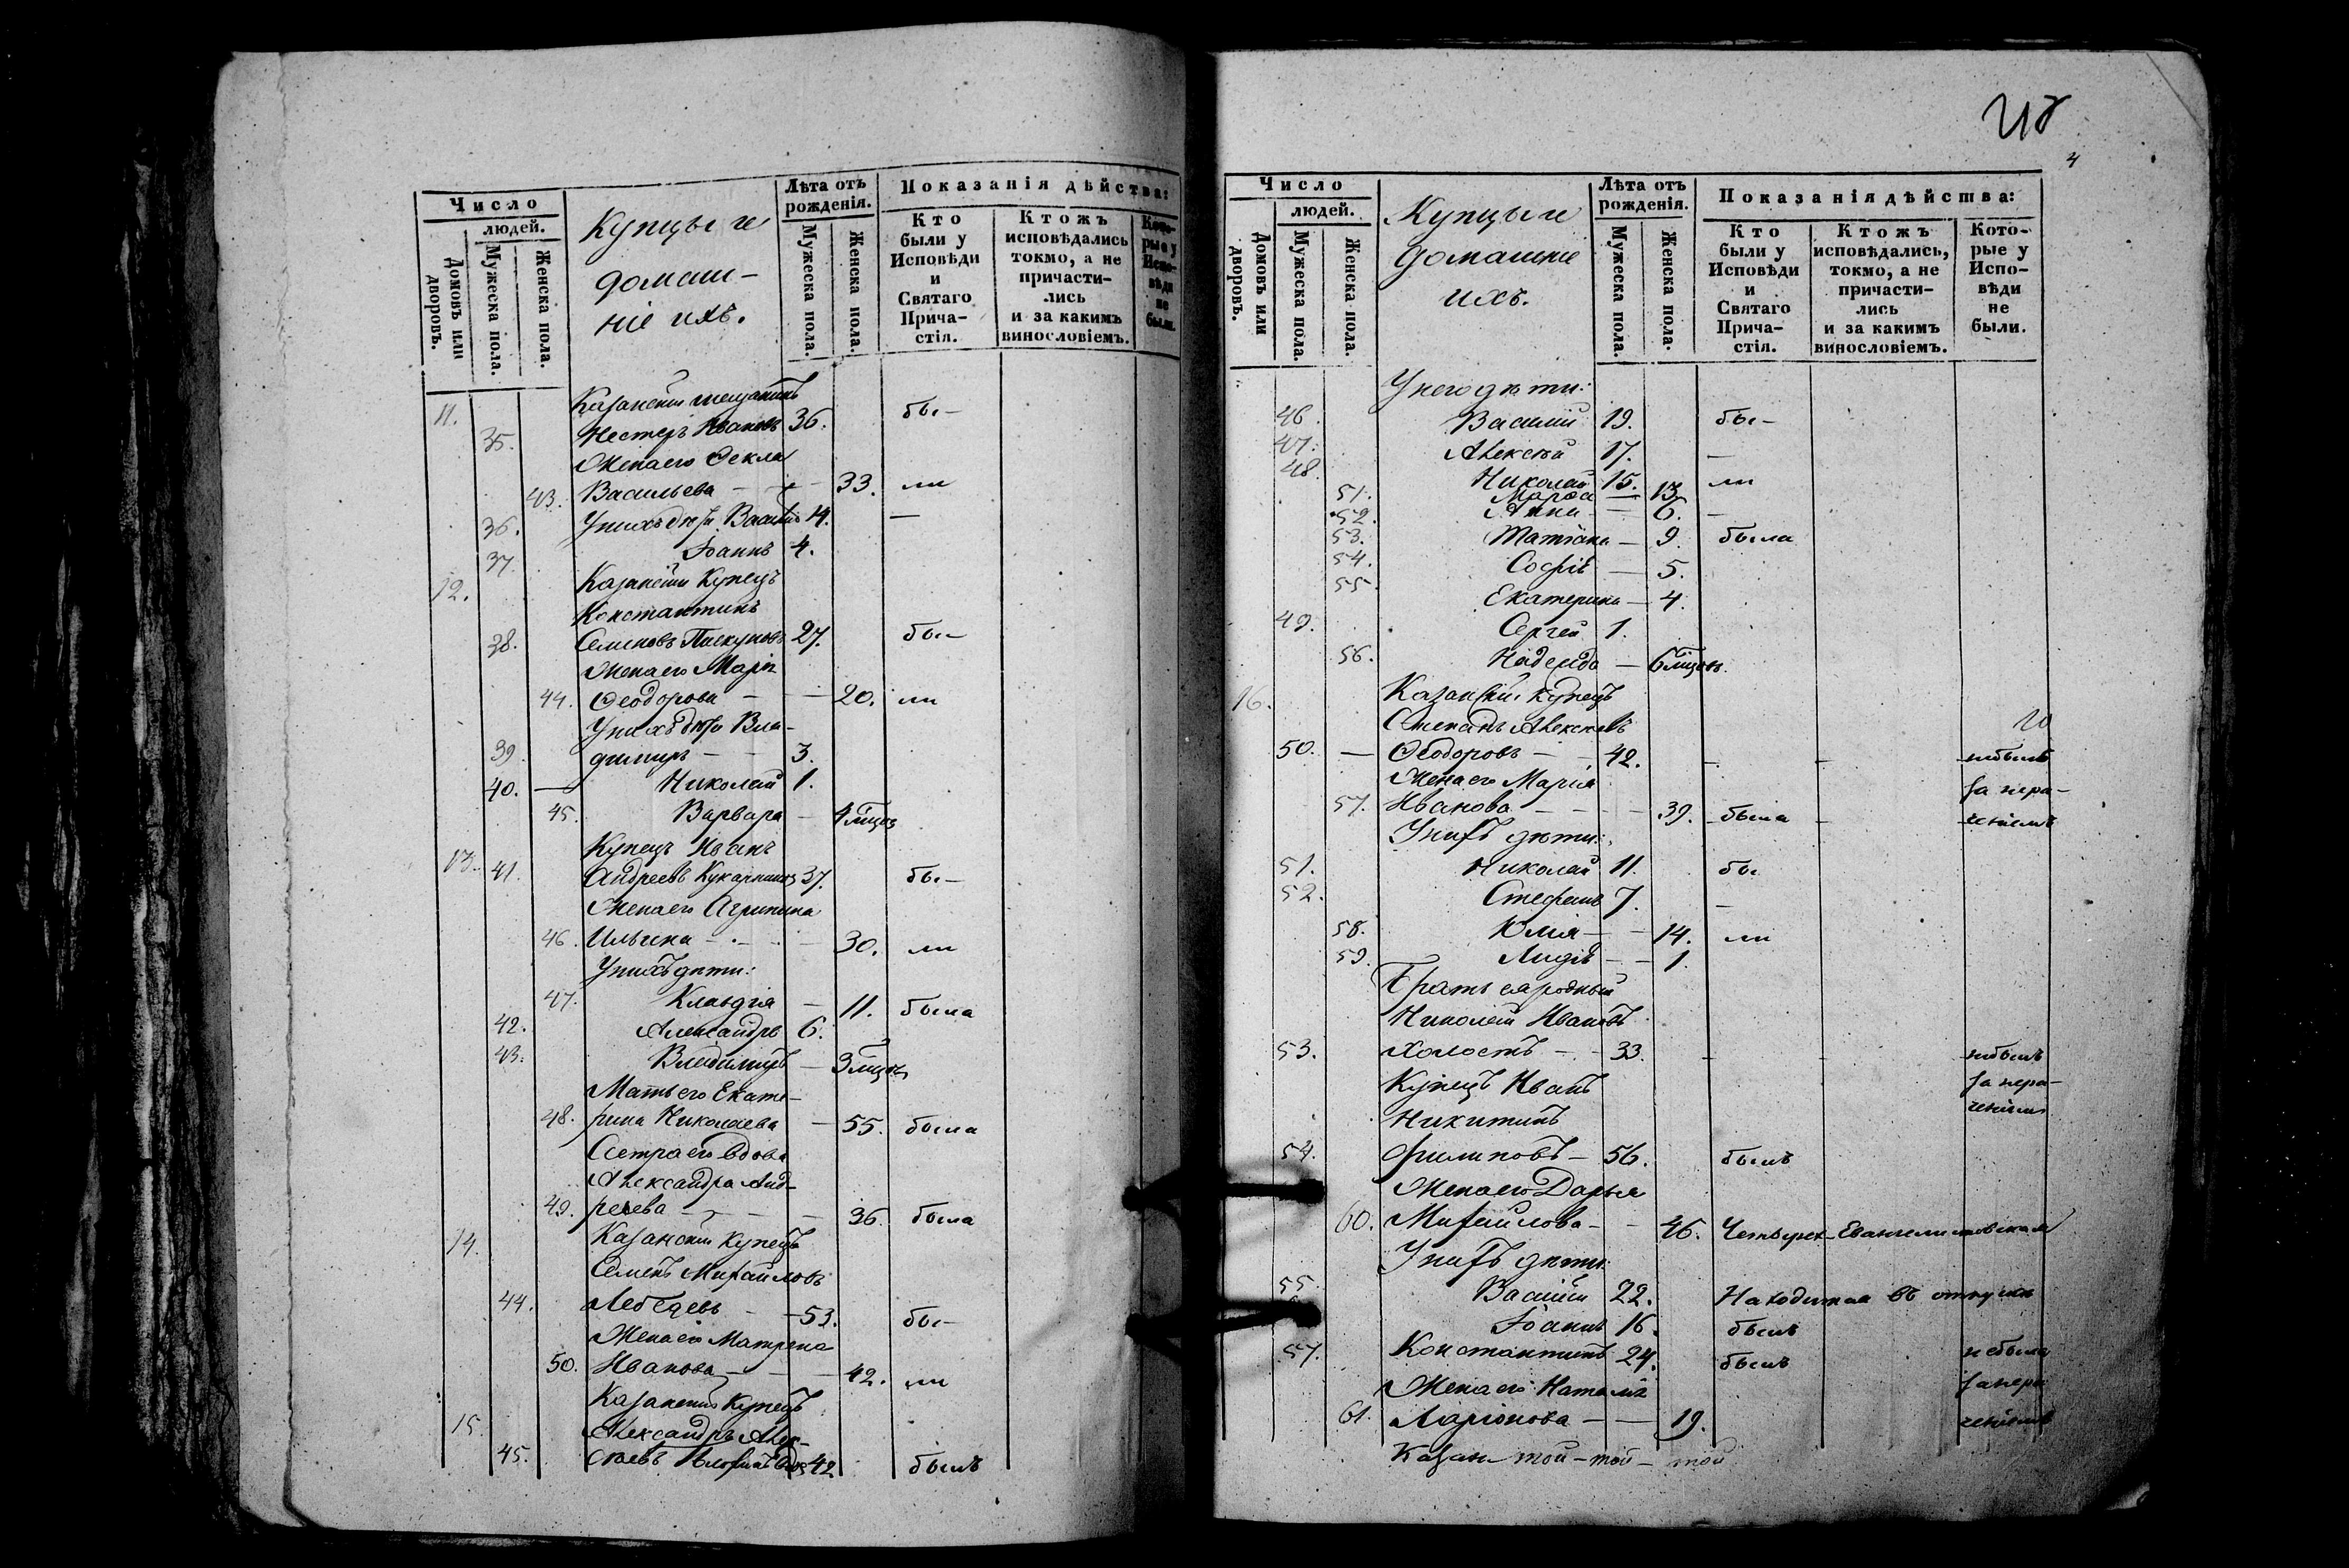 Число
людей.
Домовъ или дворовъ.
Мужеска пола.
Женска пола.
Купцы и
домаш-
ніе ихъ.
Лѣта отъ
рожденія.
Мужеска пола.
Женска пола.
Показанія дѣйства:
Кто
были у
Исповѣди
и
Святаго
Прича-
стія.
Ктожъ
исповѣдались
токмо, а не
причасти-
лись
и за какимъ
винословіемъ.
Кото-
рые у
Испо-
вѣди
не
были.
Казанскій мещанинъ
11. 35. Нестеръ Ивановъ 36. бы-
Жена его Фекла
43. Васильева - - 33. ли
36. У нихъ дѣти Василій 14. —
37. Іоаннъ 4.
12. Казанскій Купецъ
Константинъ
38. Семеновъ Пискуновъ 27. бы-
Жена его Марія
44. Феодорова - - 20. ли
У нихъ дѣти Вла-
39. димиръ - - 3.
40. — Николай 1.
45. Варвара - 4 мѣцов
Купецъ Иванъ
13. 41. Андреевъ 37. бы-
Жена его Агрипина
46. Ильина - - - 30. ли
У нихъ дѣти:
47. Клавдія - 11. была
42. Александръ 6.
43. Владимиръ - 3 мѣцов
Мать его Екате-
48. рина Николаева - 55. была
Сестра его вдова
Александра Анд-
49. реева - - - - 36. была
14. Казанскій Купецъ
Семенъ Михайловъ
44. Лебедевъ - - 53. бы-
Жена его Матрена
50. Иванова - - - 42. ли
Казанскій Купецъ
15. Александръ Алек-
45. сѣевъ 42 былъ
4
Число
людей.
Домовъ или дворовъ.
Мужеска пола.
Женска пола.
Купцы и
домашніе
ихъ.
Лѣта отъ
рожденія.
Мужеска пола.
Женска пола.
Показанія дѣйства:
Кто
были у
Исповѣди
и
Святаго
Прича-
стія.
Ктожъ
исповѣдались,
токмо, а не
причасти-
лись
и за какимъ
винословіемъ.
Кото-
рые у
Испо-
вѣди
не
были.
У него дѣти:
46. Василій 19. бы-
47. Алексѣй 17. —
48. Николай 15. ли
51. Марфа — 13.
52. Анна — 6. —
53. Татіана — 9. была
54. Софія — 5.
55. Екатерина — 4.
49. Сергей 1.
56. Надежда — 6 мѣцов.
16. Казанскій Купецъ
Степанъ Алексѣевъ
50. — Феодоровъ - - 42. - - небылъ
Жена его Марія за нера-
57. Иванова - - - 39. была - ченіемъ
У нихъ дѣти:
51. Николай 11. бы
52. Стефанъ 7. -
58. Юлія - - 14. ли
59. Лидія - - 1.
Братъ сародный
Николай Ивановъ
53. холостъ - - 33. - - небылъ
Купецъ Иванъ за нера-
Никитинъ ченіемъ
54. Филиповъ - 56. былъ
Жена его Дарья
60. Михайлова - - 46. Четырех-Евангелистовская
У нихъ дѣти:
55. Василій 22. Находится въ отлучкѣ
Іоаннъ 16. былъ
57. Константинъ 24. былъ небыла
Жена его Наталія за нера
61. Ларіонова - — 19. ченіемъ